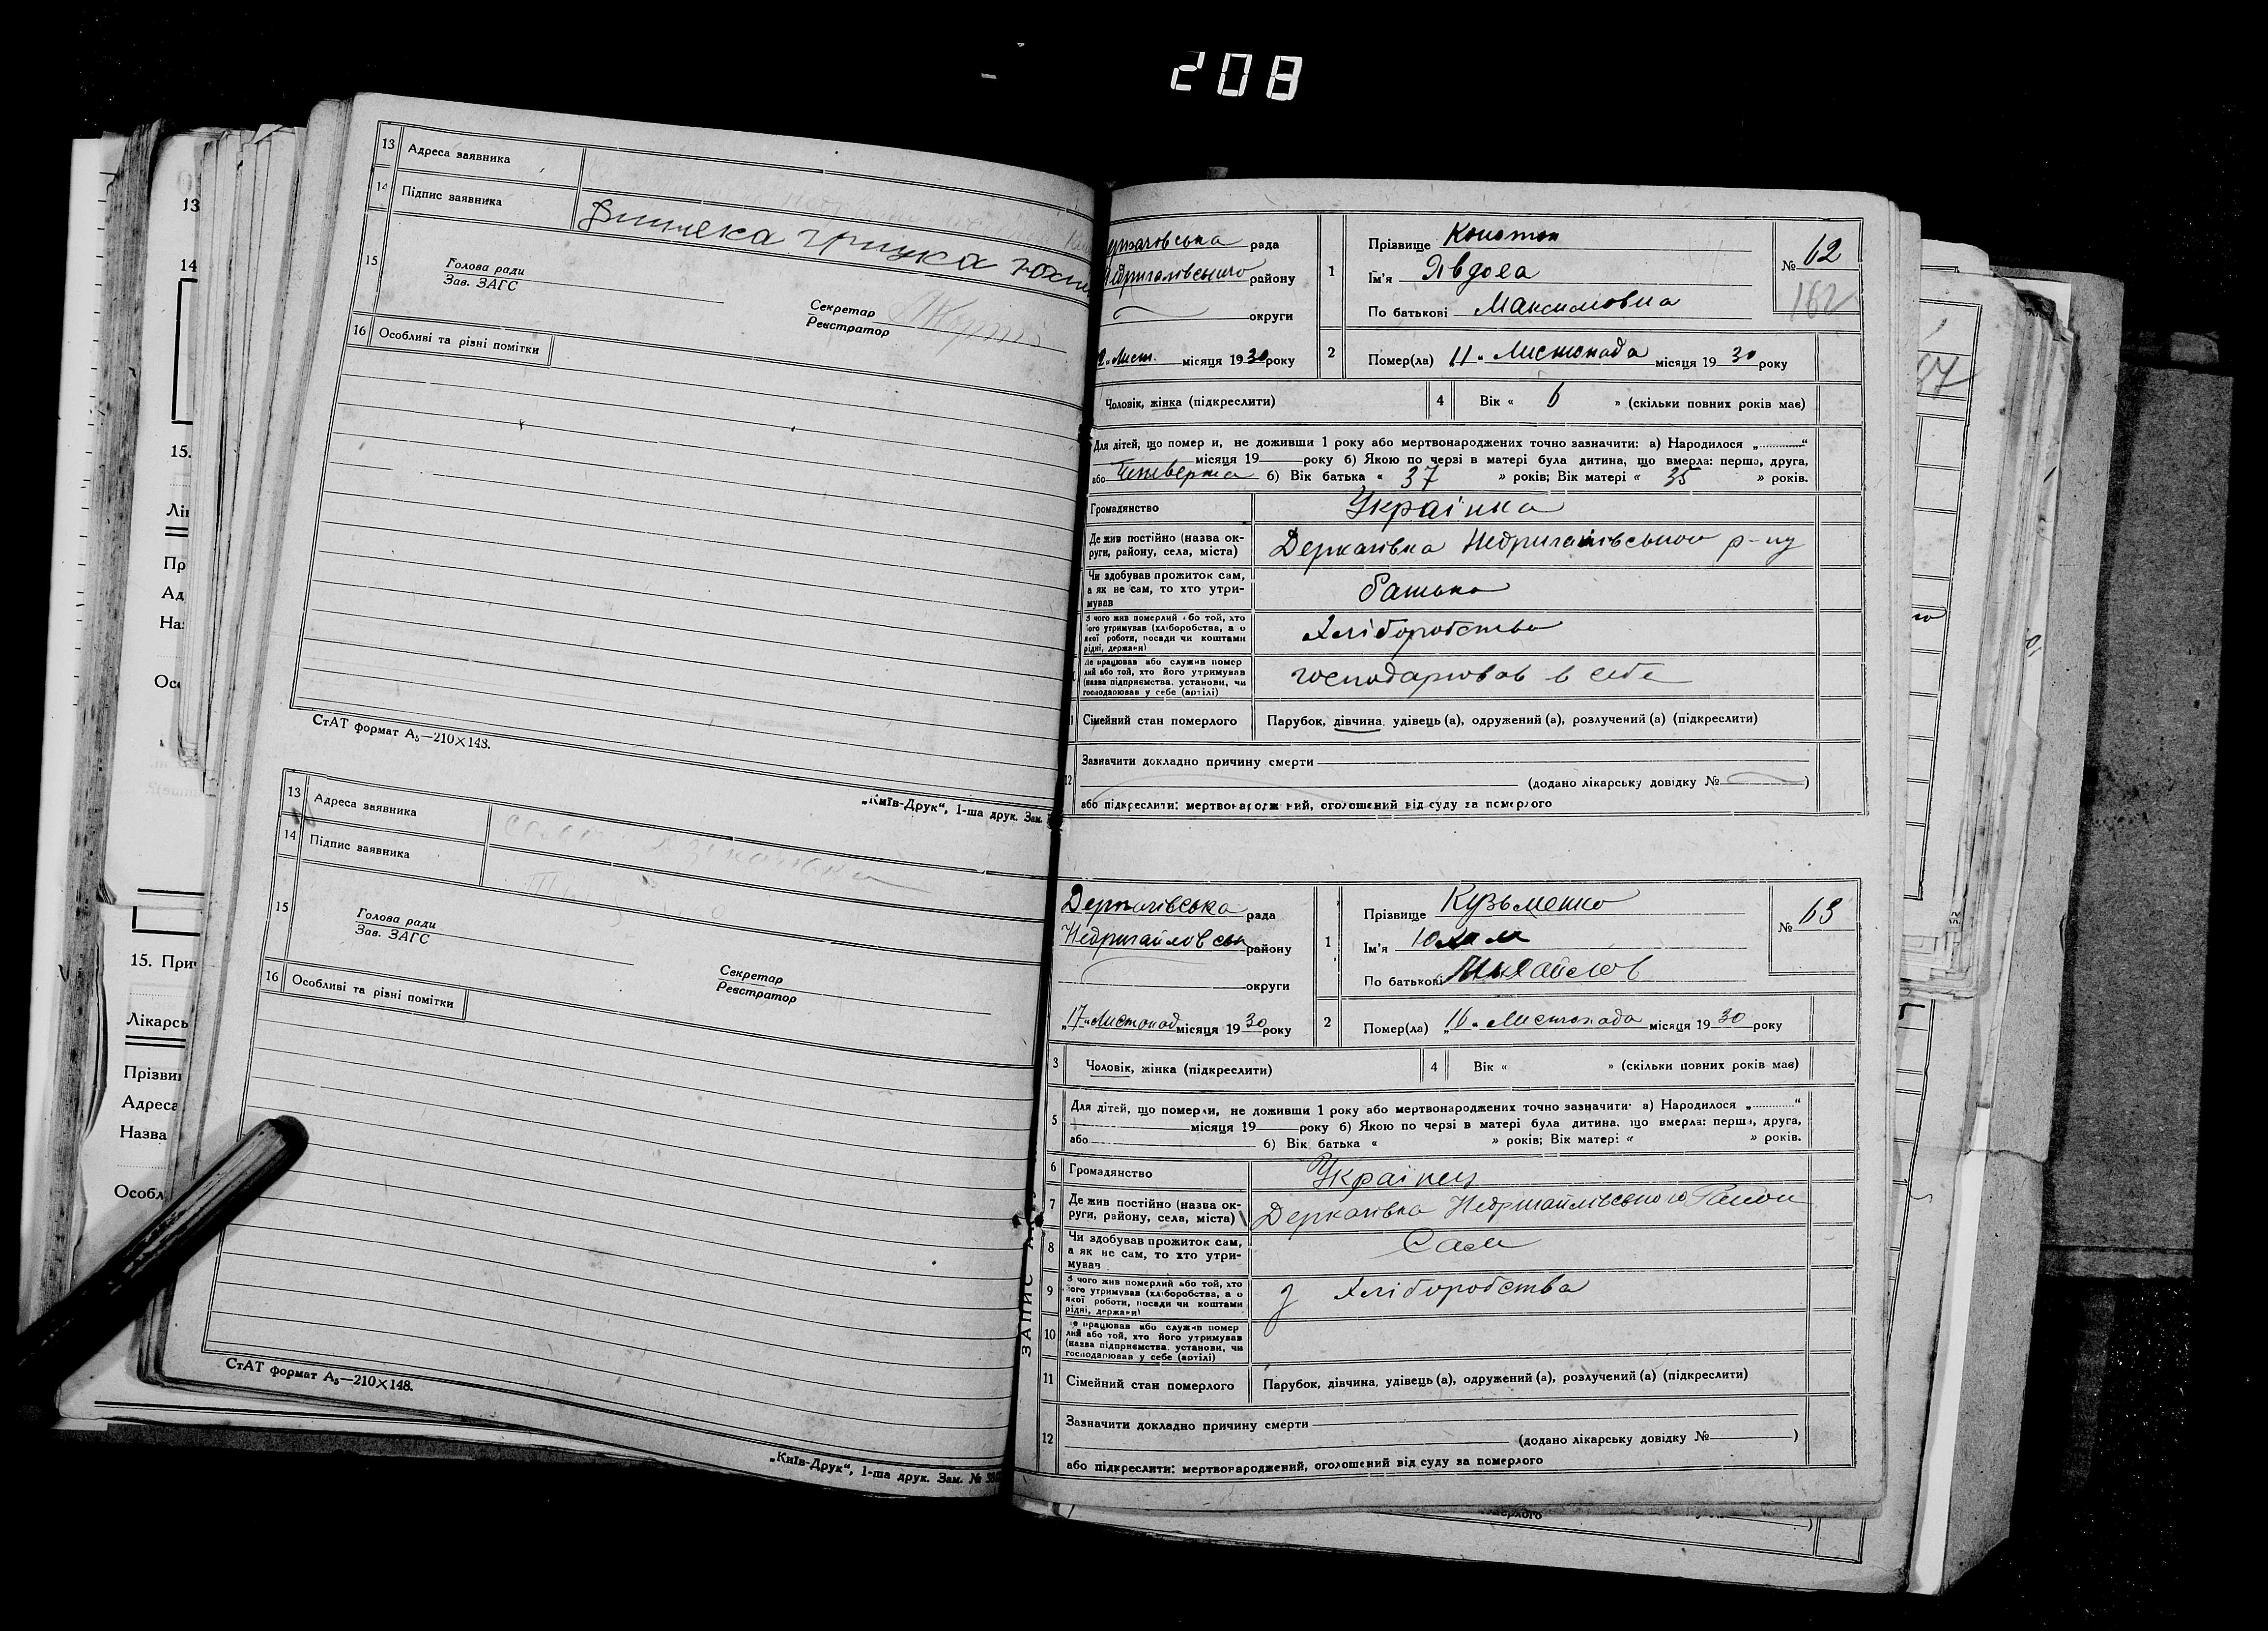 208
13 Адреса заявника
14 Підпис заявника
15 Голова ради
Зав. ЗАГС
Секретар
Реєстратор
16 Особливі та різні помітки
СтАТ формат А₅—210×148.
„Київ-Друк“, 1-ша друк. Зам.
13 Адреса заявника
14 Підпис заявника
15 Голова ради
Зав. ЗАГС
Секретар
Реєстратор
16 Особливі та різні помітки
СтАТ формат А₅—210×148.
„Київ-Друк“, 1-ша друк. Зам. №
13
14
15.
15. При
Лікарсь
Прізви
Адреса
Назва
Особл
рада
району
округи
Лист. місяця 1930 року
1 Прізвище Конотоп
Ім'я Явдоха
По батькові Максимовна
№ 62
162
2 Помер(ла) „11“ Листопада місяця 1930 року
Чоловік, жінка (підкреслити)
4 Вік « 6 » (скільки повних років має)
Для дітей, що померли, не доживши 1 року або мертвонароджених точно зазначити: а) Народилося „......“
місяця 19 року б) Якою по черзі в матері була дитина, що вмерла: перша, друга,
або четверта б) Вік батька « 37 » років; Вік матері « 35 » років.
Громадянство Українка
Де жив постійно (назва ок-
руги, району, села, міста) Деркачівка Недригайлівського р-ну
Чи здобував прожиток сам,
а як не сам, то хто утри-
мував батько
З чого жив померлий або той, хто
його утримував (хліборобства, а о
якої роботи, посади чи коштами
рідні, держави) Хліборобства
Де працював або служив помер
лий або той, хто його утримував
(назва підприємства, установи, чи
господарював у себе (артілі) господарював в себе
Сімейний стан померлого Парубок, дівчина, удівець (а), одружений (а), розлучений (а) (підкреслити)
12 Зазначити докладно причину смерти
(додано лікарську довідку № )
або підкреслити: мертвонароджений, оголошений від суду за померлого
ЗАПИС
Деркачівська рада
району
округи
„17“ Листопад місяця 1930 року
1 Прізвище Кузьменко
Ім'я
По батькові Михайлов
№ 63
2 Помер(ла) „16“ Листопада місяця 1930 року
3 Чоловік, жінка (підкреслити)
4 Вік « » (скільки повних років має)
5 Для дітей, що померли, не доживши 1 року або мертвонароджених точно зазначити: а) Народилося „......“
місяця 19 року б) Якою по черзі в матері була дитина, що вмерла: перша, друга,
або б) Вік батька « » років; Вік матері « » років.
6 Громадянство Українец
7 Де жив постійно (назва ок-
руги, району, села, міста) Деркачівка Недригайлівського
8 Чи здобував прожиток сам,
а як не сам, то хто утри-
мував Сам
9 З чого жив померлий або той, хто
його утримував (хліборобства, а о
якої роботи, посади чи коштами
рідні, держави) з Хліборобства
10 Де працював або служив помер
лий або той, хто його утримував
(назва підприємства, установи, чи
господарював у себе (артілі)
11 Сімейний стан померлого Парубок, дівчина, удівець (а), одружений (а), розлучений (а) (підкреслити)
12 Зазначити докладно причину смерти
(додано лікарську довідку № )
або підкреслити: мертвонароджений, оголошений від суду за померлого